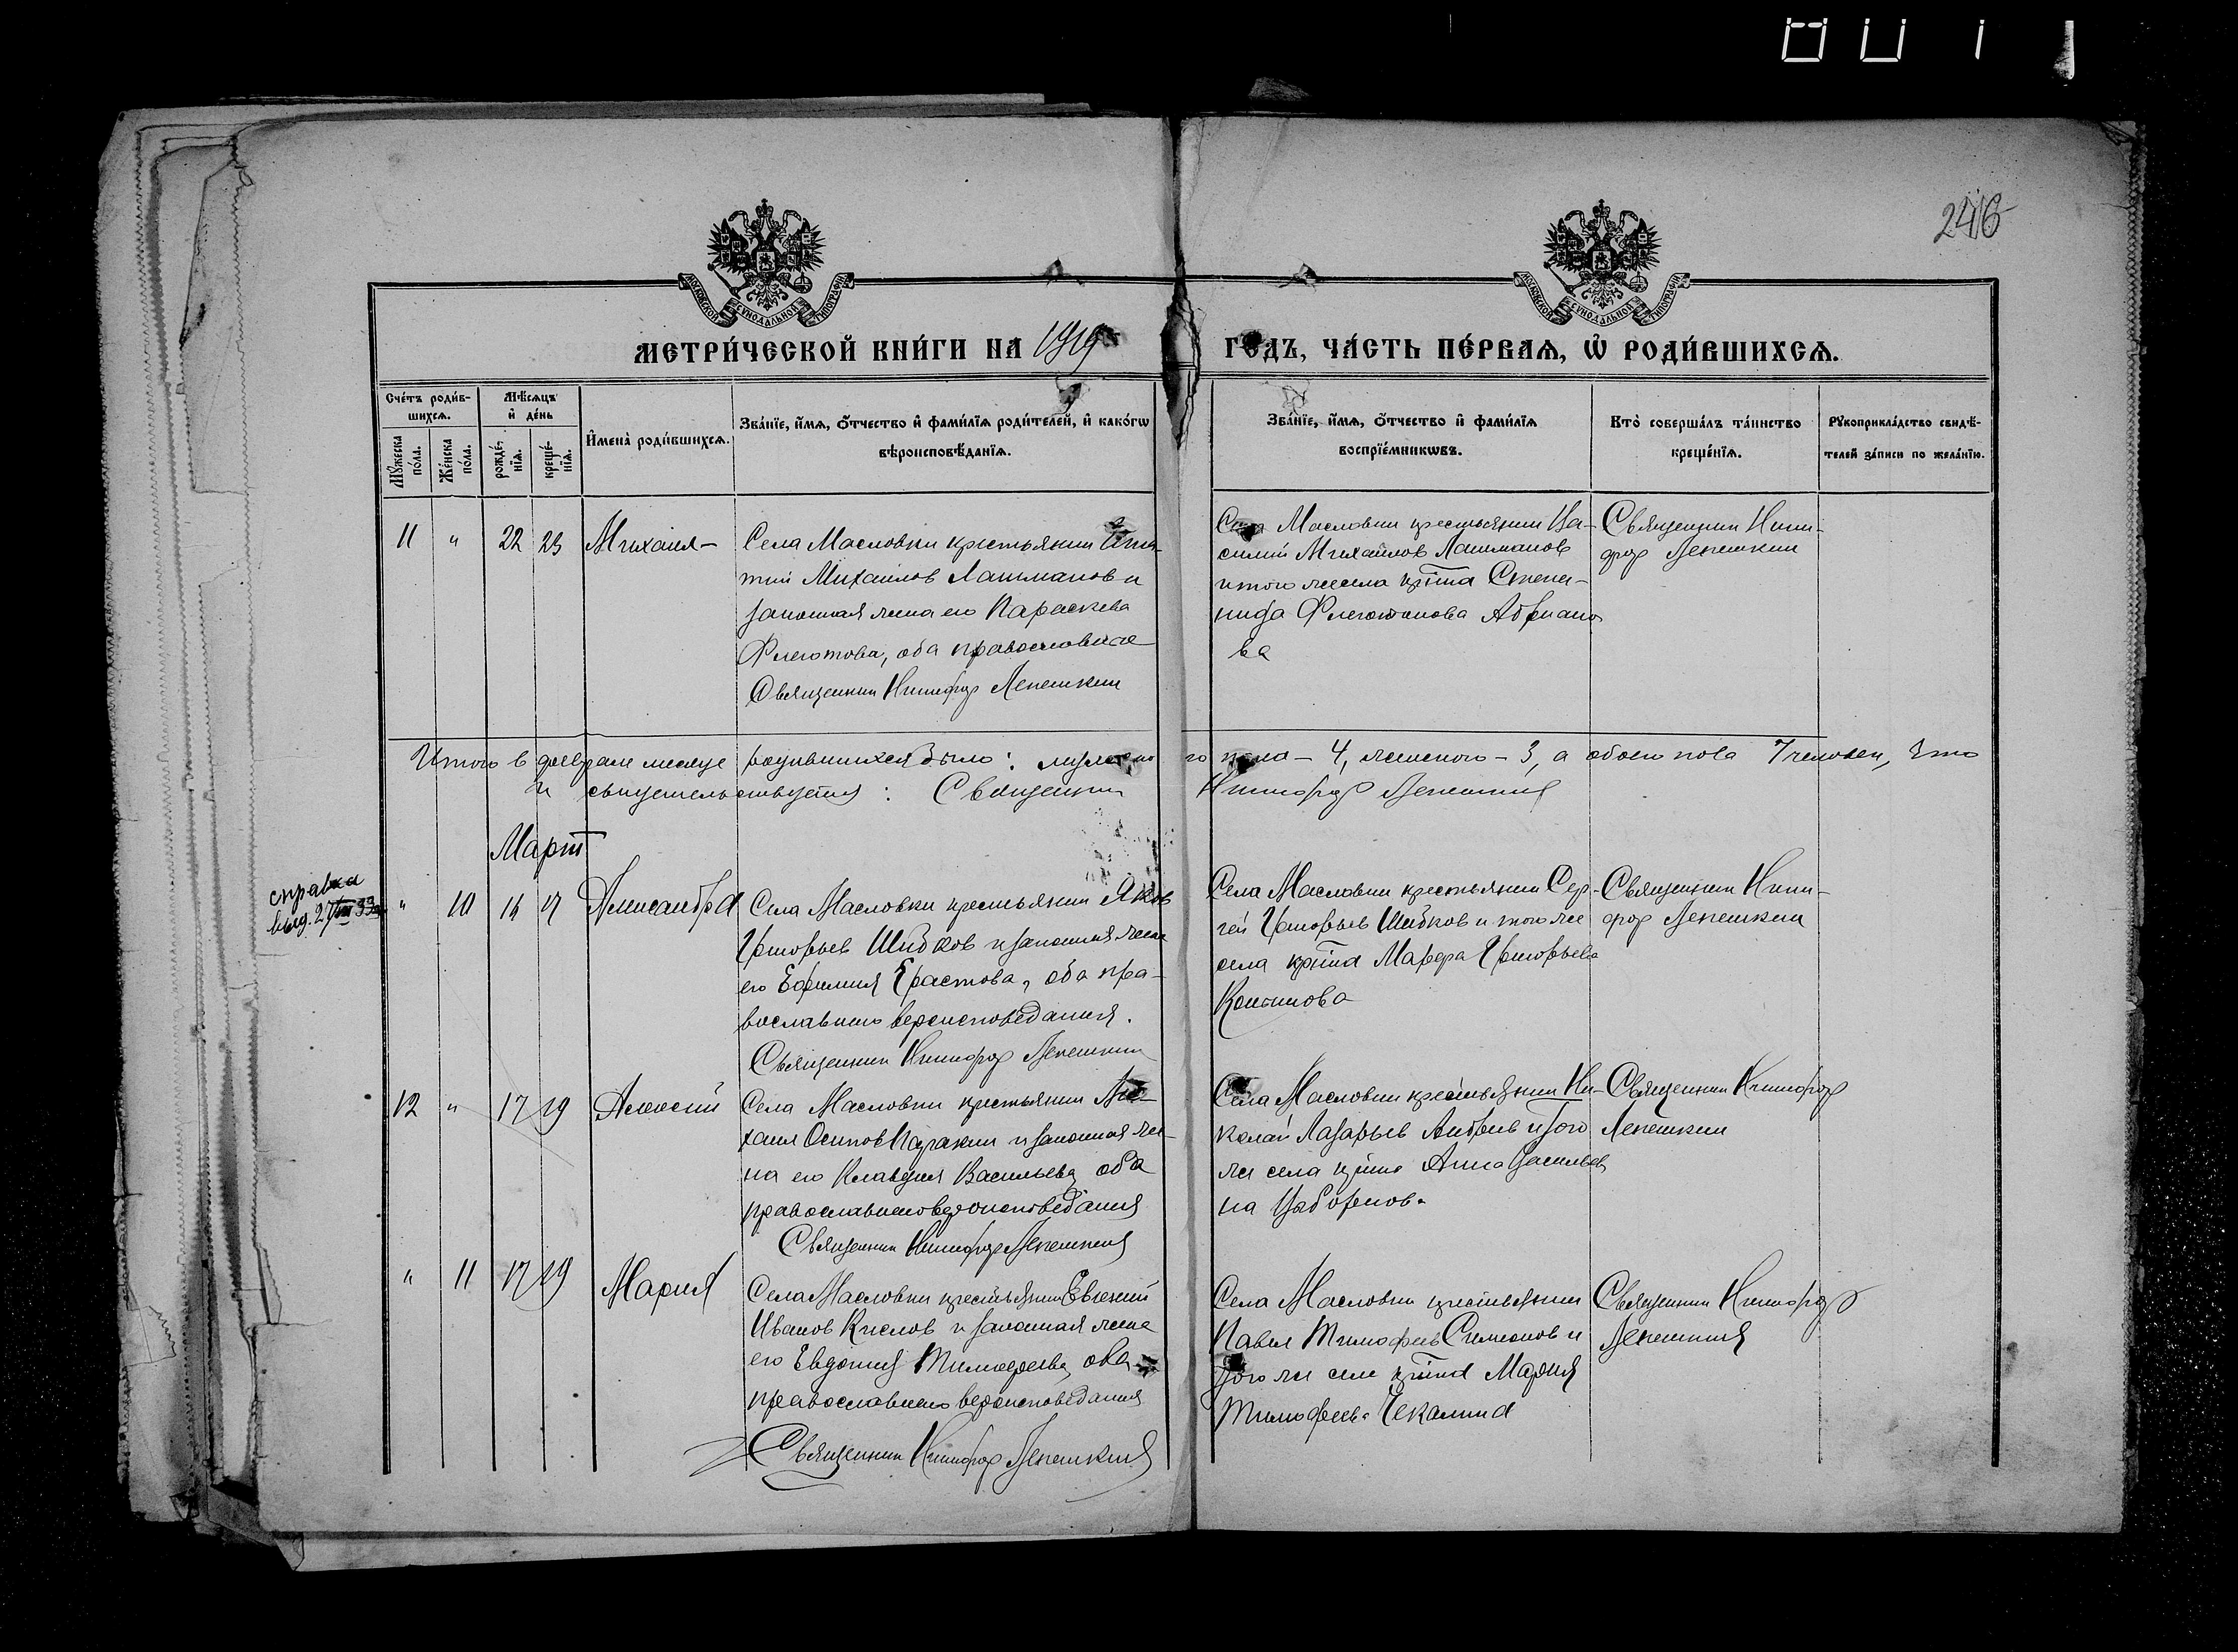 246
МОСКОВСКОЙ СѴНОДАЛЬНОЙ ТИПОГРАФІИ
МОСКОВСКОЙ СѴНОДАЛЬНОЙ ТИПОГРАФІИ
МЕТРИ́ЧЕСКОЙ КНИ́ГИ НА 1919 ГОДЪ, ЧА́СТЬ ПЕ́РВАѦ, Ѡ РОДИ́ВШИХСѦ.
Сче́тъ роди́в-
шихсѧ.
Мѹжеска по́ла.
Же́нска по́ла.
Мѣ́сѧцъ
и де́нь
рожде́-
нїѧ.
креще́-
нїѧ.
Имена̀ роди́вшихсѧ.
Зва́нїе, и́мѧ, ѻ́тчество и фами́лїѧ роди́телей, и како́гѡ
вѣроисповѣ́данїѧ.
Зва́нїе, и́мѧ, ѻ́тчество и фами́лїѧ
воспрїе́мникѡвъ.
Кто̀ соверша́лъ та́инство
креще́нїѧ.
Рѹкоприкла́дство свидѣ́-
телей за́писи по жела́нїю.
11 " 22 23 Михаил
Села Масловки крестьянин
Михаилов Лашманов и
законная жена его Параскева
Флегонтова, оба православные
Священник Никифор Лепешкин
Села Масловки крестьянин Ва-
силий Михаилов Лашманов
и того же села кр-тна Степа-
нида Флегонтова Абрамо
ва
Священник Ники-
фор Лепешкин
Итого в феврале месяце родившихся было: мужеско го пола - 4, женского - 3, а обоего пола 7 человек, Что
и свидетельствуется: Священник Никифор Лепешкин
Март
справка
выд. 27/VIII 33
" 10 14 17 Александра
Села Масловки крестьянин Яков
Григорьев Шибков и законная жена
его Ефимия Ерастова, оба пра-
вославного вероисповедания.
Священник Никифор Лепешкин
Села Масловки крестьянин Сер-
гей Григорьев Шибков и того же
села кр-тна Марфа Григорьева
Священник Ники-
фор Лепешкин
12 " 17 19 Алексий
Села Масловки крестьянин Ми-
хаил Осипов и законная же-
на его Клавдия Васильева, оба
православного вероисповедания
Священник Никифор Лепешкин
Села Масловки крестьянин Ни-
колай Лазарьев и того
же села кр-тна Анна Васильев
на
Священник Никифор
Лепешкин
" 11 17 19 Мария
Села Масловки крестьянин Евгений
Иванов Кислов и законная жена
его Евдокия Тимофеева, оба
православного вероисповедания
Священник Никифор Лепешкин
Села Масловки крестьянин
Павел Тимофеев Симонов и
того же села кр-тна Мария
Тимофеева Чекалина
Священник Никифор
Лепешкин